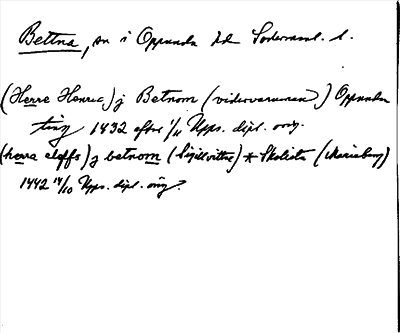 Bettna, sn i Oppunda hd Södermanl. l.
(Herre Henric) j Betnom (vidervarumen) Oppunda
ting 1432 efter 1/11 Upps. dipl. orig.
(herra eleffs) j betnom (Sigillvittne) * Skolista (Mariaberg)
1442 14/10 Upps. dipl. orig.